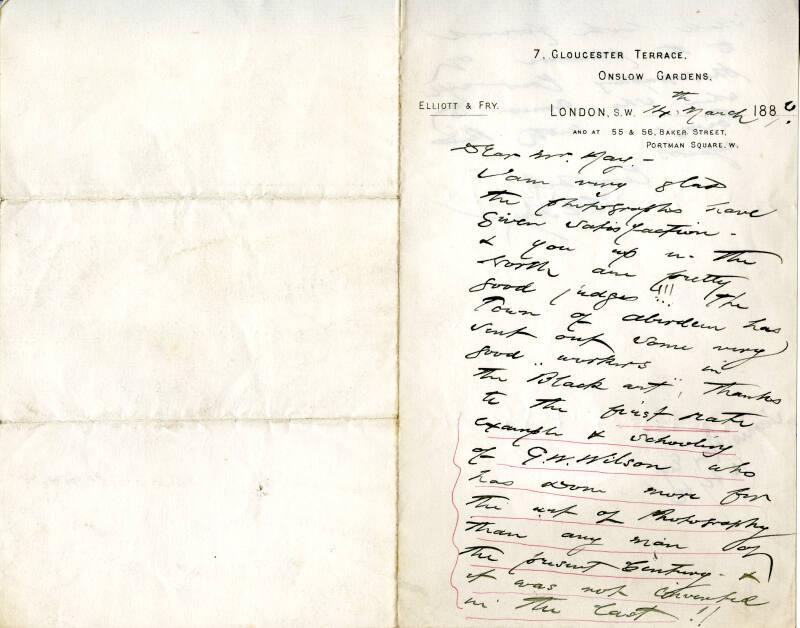 7, GLOUCESTER TERRACE,
ONSLOW GARDENS,
ELLIOTT & FRY.
LONDON, S.W. 14th March 188
AND AT 55 & 56, BAKER STREET,
PORTMAN SQUARE, W.
Dear Mr. Hay. -
I am very glad
the photographs have
given satisfaction -
& you up in the
North are pretty
good judges!!! The
Town of Aberdeen has
sent out some very
good "workers" in
the Black art! Thanks
to the first rate
example & schooling
of G.W. Wilson who
has done more for
the art of Photography
than any man of
the present Century - &
it was not invented
in the last!!